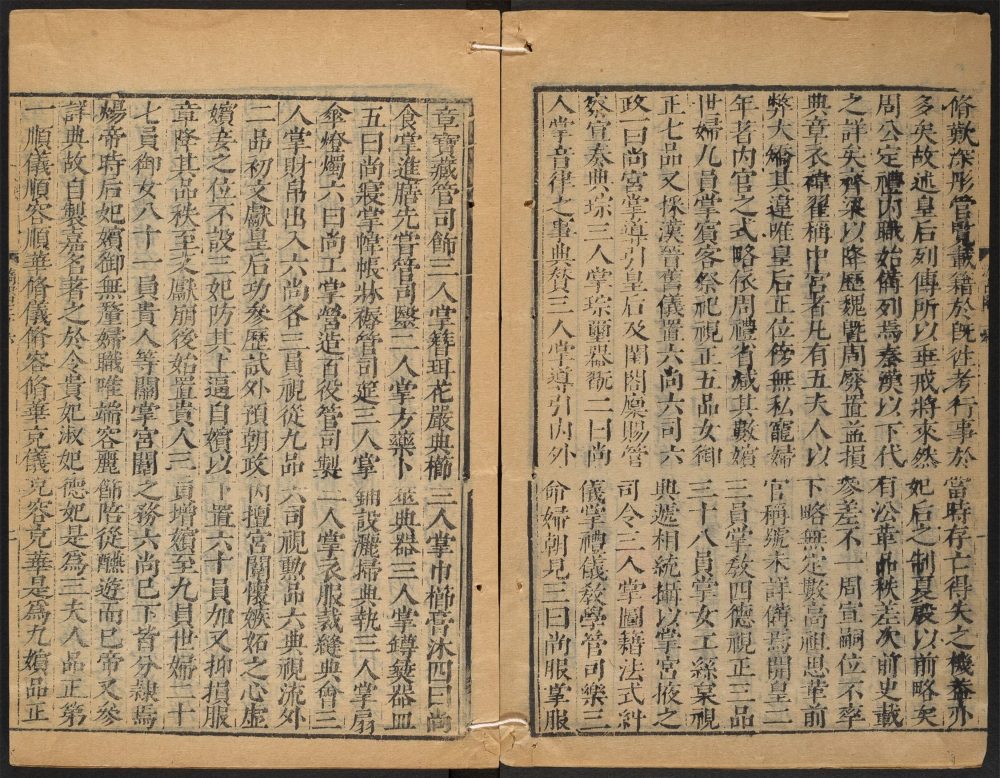 脩歟深彤管覽載籍於旣往考行事於當時存亡得失之機蓋亦
多矣故述皇后列傳所以垂戒將來然妃后之制夏殷以前略矣
周公定禮内職始備列焉秦漢以下代有沿革品秩差次前史載
之詳矣齊梁以降歷魏曁周廢置益損參差不一周宣嗣位不率
典章衣褘翟稱中宮者凡有五夫人以下略無定數高祖思革前
弊大矯其違唯皇后正位傍無私寵婦官稱號未詳備焉開皇二
年著内官之式略依周禮省減其數嬪三員掌敎四德視正三品
世婦九員掌賓客祭祀視正五品女御三十八員掌女工絲枲視
正七品又採漢晉舊儀置六尚六司六典遞相統攝以掌宮掖之
政一曰尚宮掌導引皇后及閨閤廩賜管司令三人掌圖籍法式糾
察宣奏典琮三人掌琮璽器翫二曰尚儀掌禮儀敎學管司樂三
人掌音律之事典贊三人掌導引内外命婦朝見三曰尚服掌服
章寶藏管司飾三人掌簪珥花嚴典櫛三人掌巾櫛膏沐四曰尚
食掌進膳先嘗管司醫二人掌方藥卜筮典器三人掌罇彝器皿
五曰尚寢掌幃帳牀褥管司筵三人掌鋪設灑掃典執三人掌扇
傘燈燭六曰尚工掌營造百役管司製三人掌衣服裁縫典會三
人掌財帛出入六尚各三員視從九品六司視勳品六典視流外
二品初文獻皇后功參歷試外預朝政内擅宮闈懷嫉妬之心虛
嬪妾之位不設三妃防其上逼自嬪以下置六十員加又抑損服
章降其品秩至文獻崩後始置貴人三員增嬪至九員世婦二十
七員御女八十一員貴人等關掌宮闈之務六尚已下皆分隸焉
煬帝時后妃嬪御無釐婦職唯端容麗飾陪從醼遊而已帝又參
詳典故自製嘉名著之於令貴妃淑妃德妃是爲三夫人品正第
一順儀順容順華脩儀脩容脩華充儀充容充華是爲九嬪品正